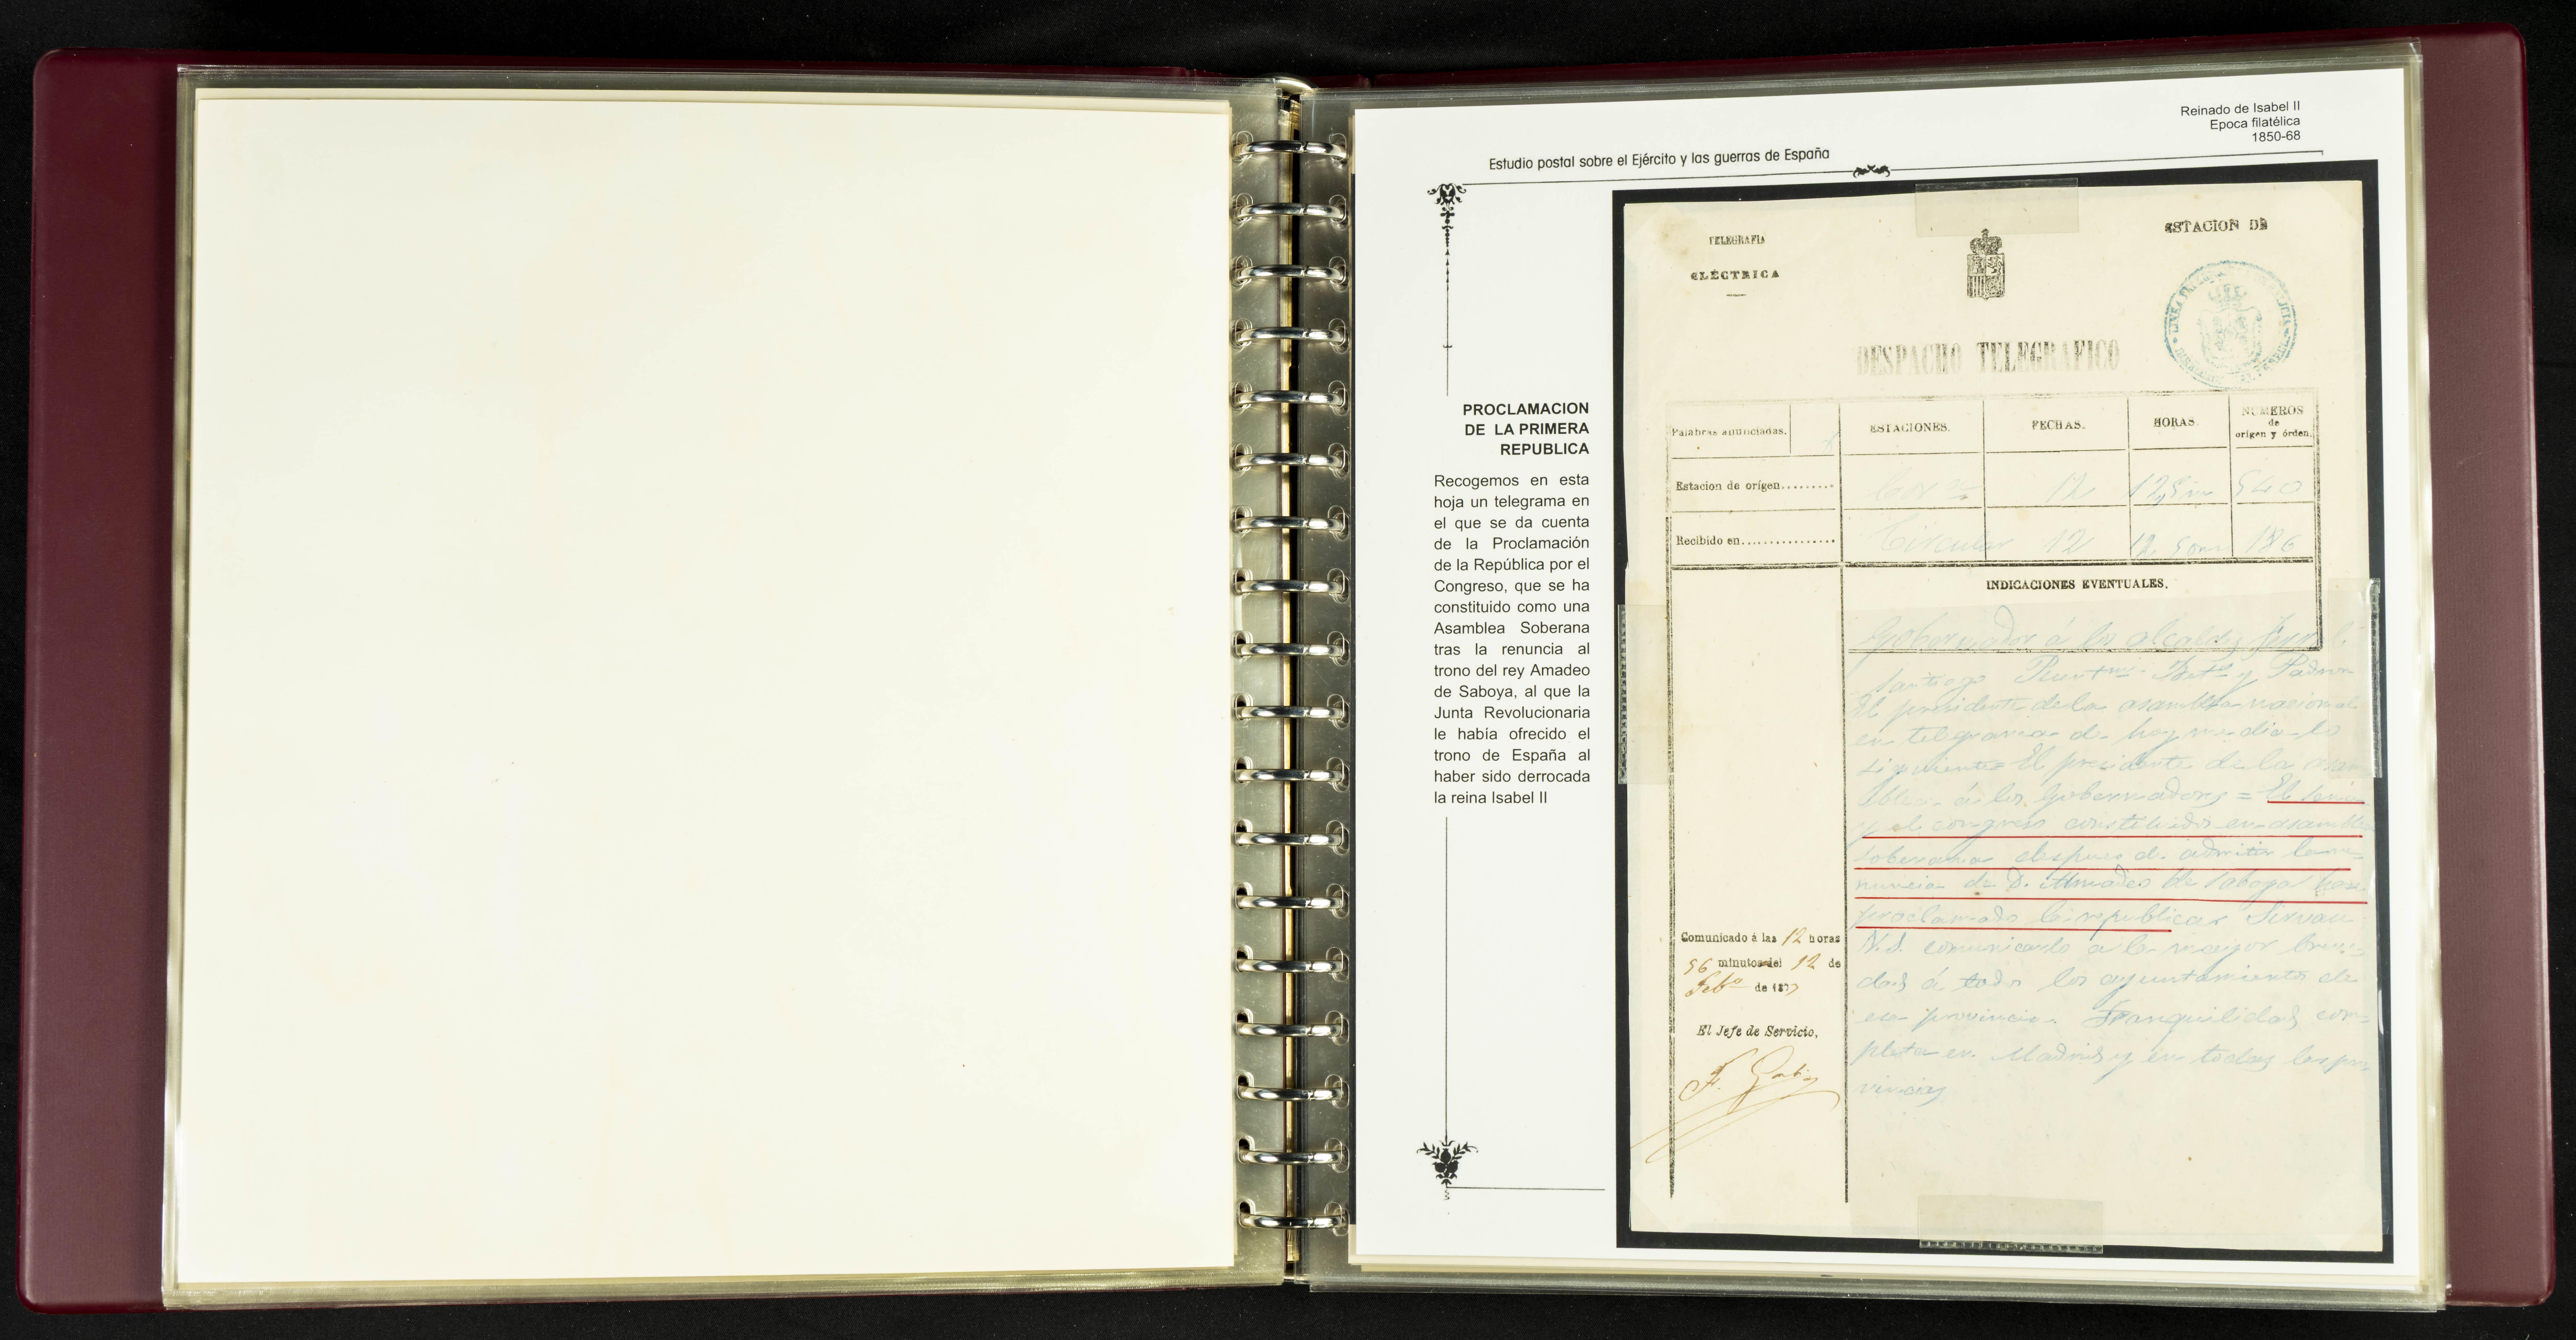 Reinado de Isabel II
Epoca filatélica
1850-68
Estudio postal sobre el Ejército y las guerras de España
PROCLAMACION
DE LA PRIMERA
REPUBLICA
Recogemos en esta
hoja un telegrama en
el que se da cuenta
de la Proclamación
de la República por el
Congreso, que se ha
constituido como una
Asamblea Soberana
tras la renuncia al
trono del rey Amadeo
de Saboya, al que la
Junta Revolucionaria
le había ofrecido el
trono de España al
haber sido derrocada
la reina Isabel II
TELEGRAFIA
ELÉCTRICA
ESTACION DE
DESPACHO TELEGRAFICO
Palabras anunciadas.
ESTACIONES.
FECHAS.
HORAS.
NUMEROS
de
origen y órden.
Estacion de orígen........
12
540
Recibido en...............
Circular
12
186
INDICACIONES EVENTUALES.
Gobernador á los alcaldes
Santiago y Padron
El presidente de la asamblea nacional
en telegrama de hoy me dice lo
siguiente El presidente de la asam
blea á los Gobernadores = El
y el congreso constituidos en asamblea
soberana despues de admitir la re
nuncia de D. Amadeo de Saboya
proclamado la republica Sirvan
V.S. comunicarlo a la mayor breve
dad á todos los ayuntamientos de
esa provincia. Tranquilidad com=
pleta en Madrid y en todas las pro
vincias
Comunicado á las 12 horas
56 minutos del 12 de
Feb.º de 1873
El Jefe de Servicio,
F.